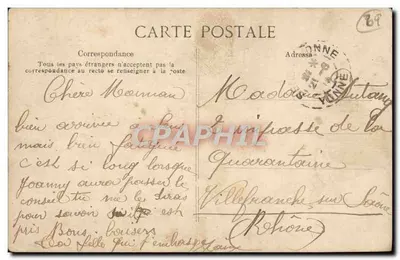 89
CARTE POSTALE
Correspondance
Adresse
Tous les pays étrangers n'acceptent pas la
correspondance au recto se renseigner à la poste
Chère Maman
bien arrivée à bon
mais bien fatiguée
c'est si long lorsque
Joanny aura passer le
conseil tu me le diras
pour savoir s'il est
pris Bons baisers
ta fille qui t'embrasse
Madame
Impasse de la
Quarantaine
Villefranche sur Saône
(Rhône)
YONNE
CPAPHIL